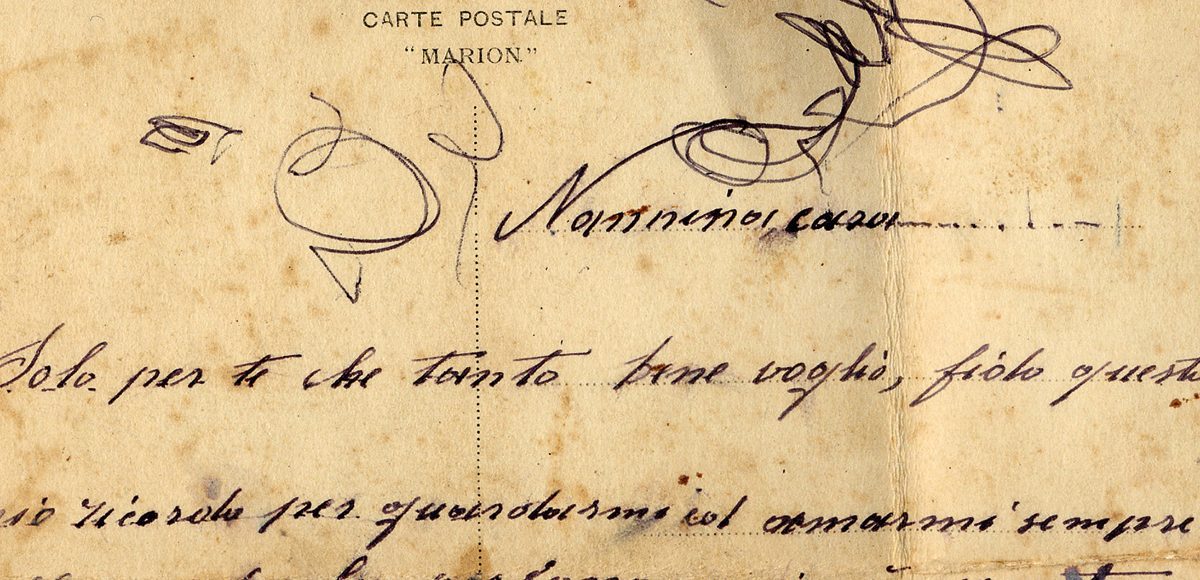 CARTE POSTALE
"MARION"
Nannina, cara
Solo per te che tanto bene voglio, fido questo
mio ricordo per guardarmi ed amarmi sempre